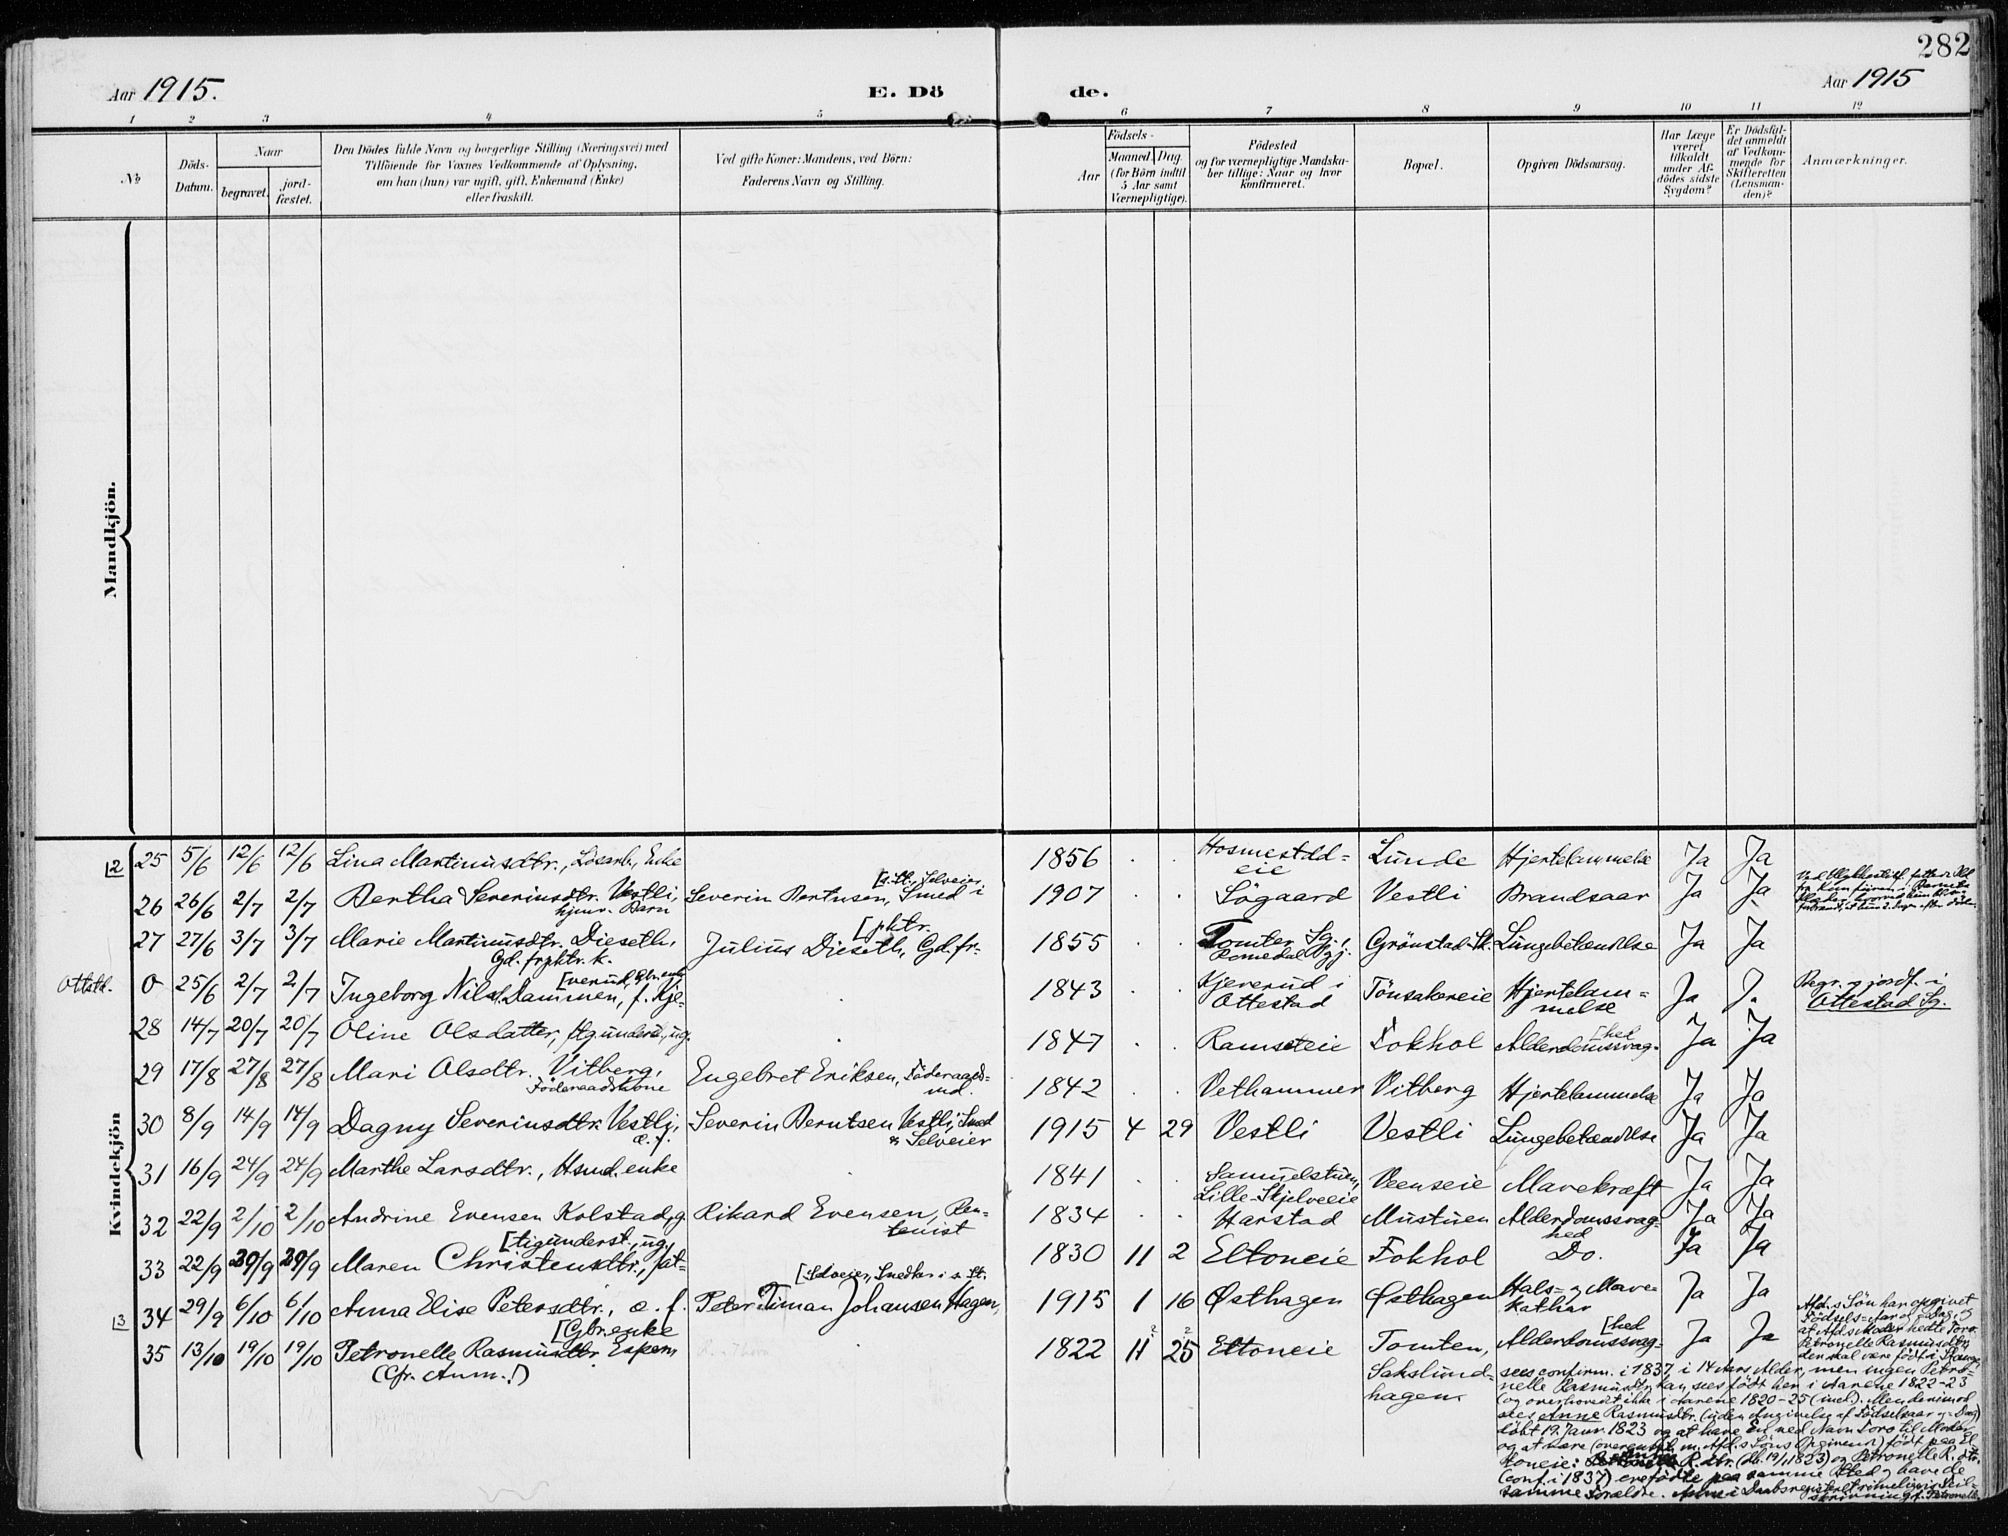 282
Aar 1915.
E. Döde.
Aar 1915
1 2 3 4 5 6 7 8 9 10 11 12
No
Döds-Datum.
Naar
begravet.
jord-fæstet.
Den Dödes fulde Navn og borgerlige Stilling (Næringsvei) med
Tilföiende for Voxnes Vedkommende af Oplysning,
om han (hun) var ugift, gift, Enkemand (Enke)
eller fraskilt.
Ved gifte Koner: Mandens, ved Börn:
Faderens Navn og Stilling.
Födsels-
Aar
Maaned. Dag
(for Börn indtil
5 Aar samt
Værnepligtige).
Födested
og for værnepligtige Mandska-
ber tillige: Naar og hvor
konfirmeret.
Bopæl.
Opgiven Dödsaarsag.
Har Læge
været
tilkaldt
under Af-
dödes sidste
Sygdom?
Er Dödsfal-
det anmeldt
af Vedkom-
mende for
Skifteretten
(Lensman-
den)?
Anmærkninger.
Mandkjön.
Kvindekjön
2 25 5/6 12/6 12/6 Lina Martinusdtr., Løsarb., Enke 1856 . . Hosmestad-eie Lunde Hjertelammelse Ja Ja
26 26/6 2/7 2/7 Bertha Severinsdtr. Vestli, hjmv. Barn Severin Berntsen, Smed i [s. St., Selveier 1907 . . Sögaard Vestli Brandsaar Ja Ja
27 27/6 3/7 3/7 Marie Martinusdtr. Dieseth, Gd. frpktr. k. Julius Dieseth, Gd. fr-[pktr. 1855 . . Tomter, Sg. i Romedal Grönstad Lungebetændelse Ja Ja
Ottstd. 0 25/6 2/7 2/7 Ingeborg Nilsd. Dammen, f. Kje-[verud, Gbr. enke . 1843 . . Kjeverud i Ottestad Tönsakereie Hjertelam-melse Ja J. Begr. og jordf. i Ottestad Sg.
28 14/7 20/7 20/7 Oline Olsdatter, ftg. underst., ug. . 1847 . . Ramseteie Fokhol Alderdomssvag-[hed Ja Ja
29 17/8 27/8 27/8 Mari Olsdtr. Vitberg, Föderaadskone Engebret Eriksen, Föderaads-md. 1842 . . Vethammer Vitberg Hjertelammelse Ja Ja
30 8/9 14/9 14/9 Dagny Severinsdtr. Vestli, æ. f. Severin Berntsen Vestli, Smed & Selveier 1915 4 29 Vestli Vestli Lungebetændelse Ja Ja
31 16/9 24/9 24/9 Marthe Larsdtr., Hsmd. enke . 1841 . . Samuelstuen, Lille-Skjelveeie Veenseie Mavekræft Ja Ja
32 22/9 2/10 2/10 Andrine Evensen Kolstad, g. Rikard Evensen, Ren-tenist 1834 . . Harstad Mustuen Alderdomssvag-hed Ja Ja
33 22/9 30/9 30/9 Maren Christensdtr., fat-[tigunderst., ug. 1830 11 2 Eltoneie Fokhol Do. Ja Ja
3 34 29/9 6/10 6/10 Anna Elise Petersdtr., æ. f. Peter Timan Johansen Hagen, [Selveier, Snedker i s. St. 1915 1 16 Østhagen Østhagen Hals- og Mave-kathar Ja Ja
35 13/10 19/10 19/10 Petronelle Rasmusdtr. Espern [Gbr. enke (Cfr. Anm.!) 1822 11 25 Eltoneie Tomten, Sakslund-hagen Alderdomssvag-[hed Ja Ja
Afd.s Sön har opgivet
Födsels-Aar og -Dag, og
at Afd.s Moder hedte Toro.
Petronelle Rasmusdtr.
sees confirm. i 1837 i 14 Aars Alder, men ingen Petro-
nelle Rasmusdtr. kan sees födt her i Aarene 1822-23
(og overhovedet ikke i Aarene 1820-25 (incl.). Men derimod
sees Anne Rasmusdtr. (uden Angivelse af Födselsaar og -Dag)
döbt 19. Janr. 1823 og at have en ved Navn Toro til Moder
og at være (overensst. m. Afd.s Söns Opgivende) födt paa El-
toneie: R.dtr. (db. 19/1 1823) og Petronelle R.dtr.
(conf. i 1837) ere födte paa samme Sted og have de
samme Forældre.